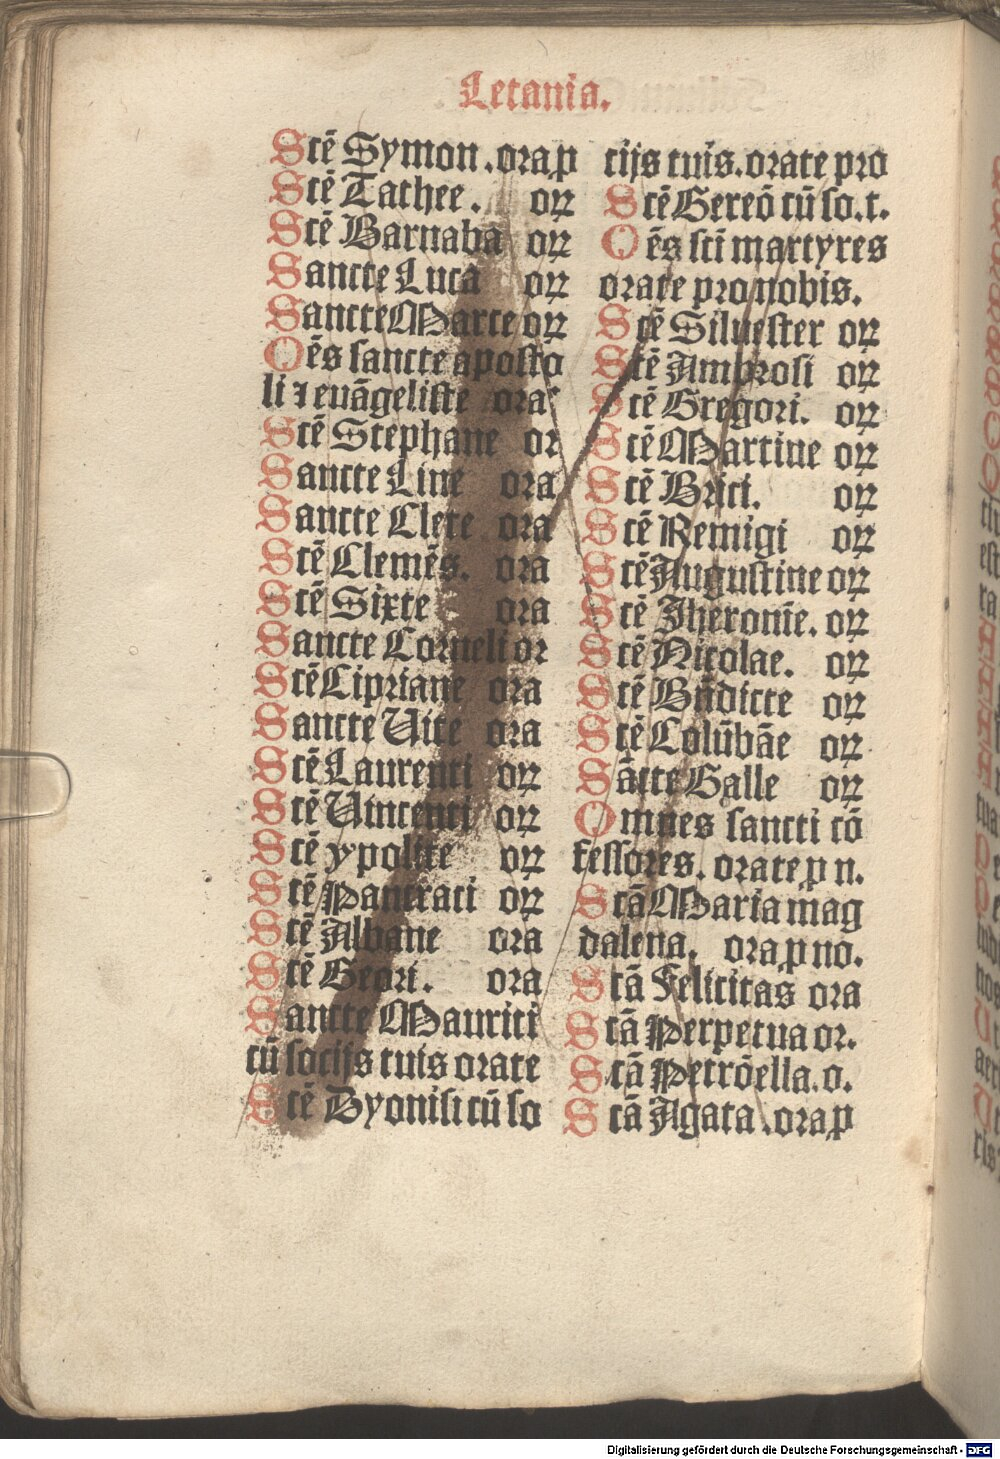 Letania.
Sctē Symon .ora ꝑ
Sctē Tathee . orꝝ
Sctē Barnaba orꝝ
Sancte Luca orꝝ
Sancte Marce orꝝ
Oēs sancte aposto
li ⁊ euāgeliste ora
Sctē Stephane or
Sancte Line ora
Sancte Clete ora
Sctē Clemēs. ora
Sctē Sixte ora
Sancte Corneli or
Sctē Cipriane ora
Sancte Uite ora
Sctē Laurenti orꝝ
Sctē Uincenti orꝝ
Sctē ypolite orꝝ
Sctē Pancraci orꝝ
Sctē Albane ora
Sctē Geori. ora
Sancte Mauriti
cū socijs tuis orate
Sctē Dyonisi cū so
cijs tuis. orate pro
Sctē Gereō cū so. t.
Oēs scti martyres
orate pro nobis.
Sctē Siluester orꝝ
Sctē Ambrosi orꝝ
Sctē Gregori. orꝝ
Sctē Martine orꝝ
Sctē Brici. orꝝ
Sctē Remigi orꝝ
Sctē Augustine orꝝ
Sctē Jheronīe. orꝝ
Sctē Nicolae. orꝝ
Sctē Bn̄dicte orꝝ
Sctē Colūbāe orꝝ
Sācte Galle orꝝ
Omnes sancti cō
fessores. orate ꝑ n.
Sctā Maria mag
dalena. ora ꝑ no.
Sctā Felicitas ora
Sctā Perpetua or.
Sctā Petrōella. o.
Sctā Agata .ora ꝑ
Digitalisierung gefördert durch die Deutsche Forschungsgemeinschaft - DFG